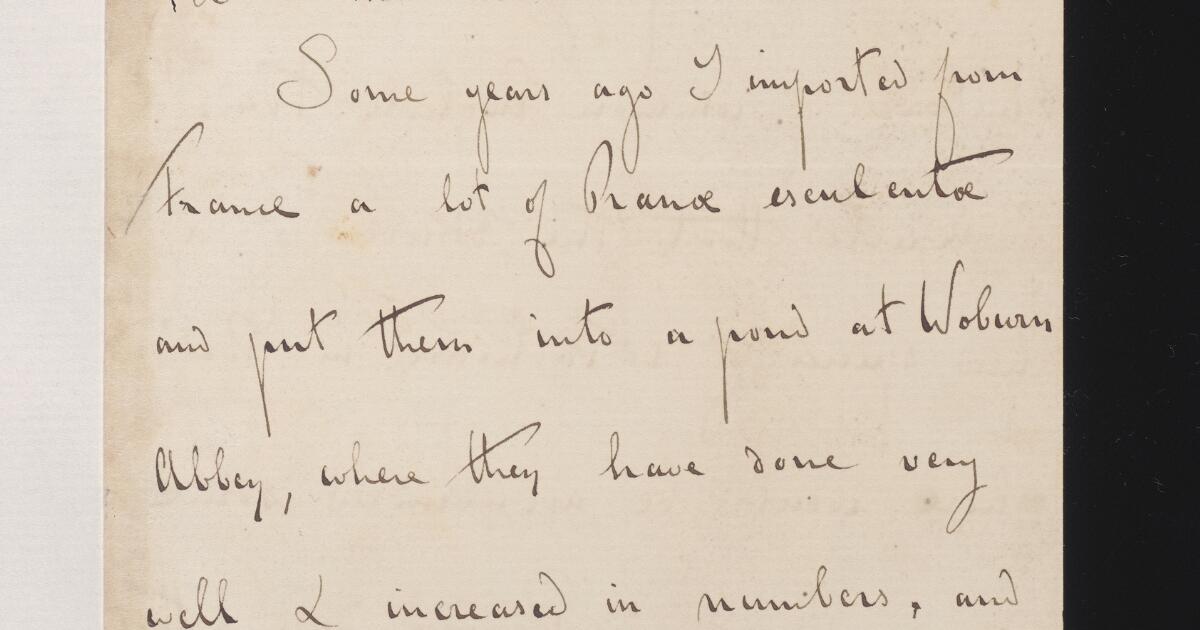 Some years ago I imported from
France a lot of Ranæ esculentæ
and put them into a pond at Woburn
Abbey, where they have done very
well & increased in numbers, and